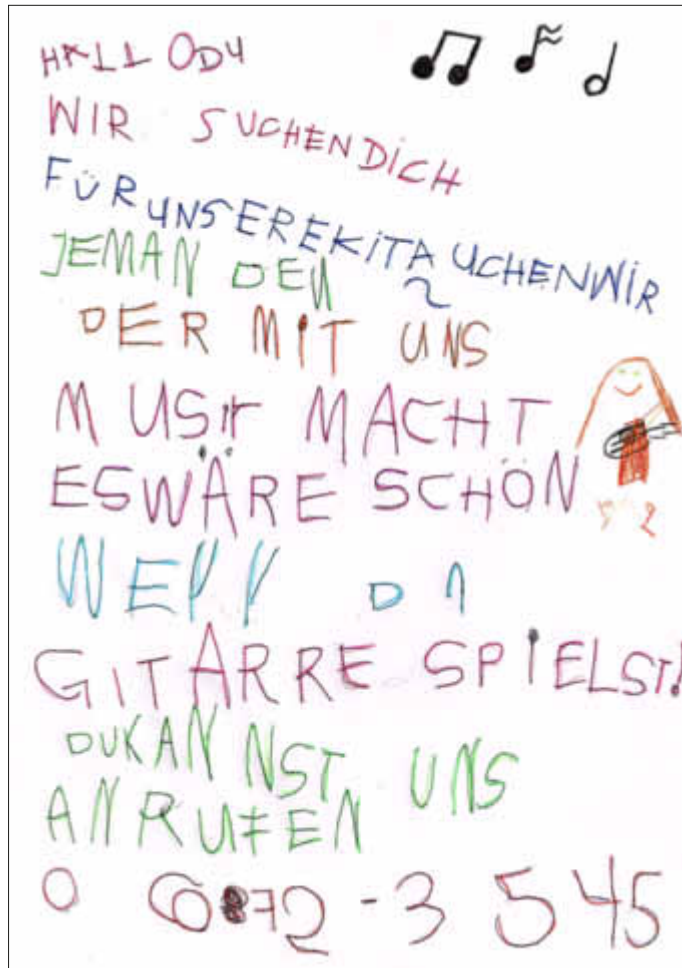 HALLO DU
WIR SUCHEN DICH
FÜR UNSERE KITA SUCHEN WIR
JEMANDEN
DER MIT UNS
MUSIK MACHT
ES WÄRE SCHÖN
WENN DU
GITARRE SPIELST!
DU KANNST UNS
ANRUFEN
0 6872-3 545